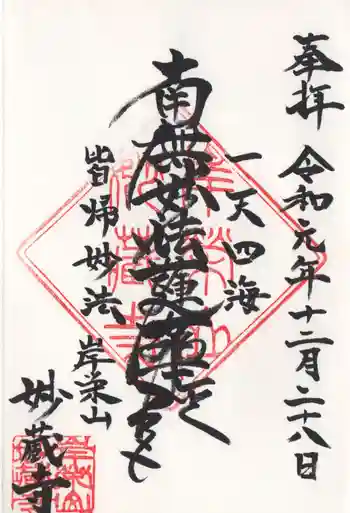 奉拝 令和元年十二月二十八日
一天四海
南無妙法蓮華経
皆帰妙法
岸栄山
妙蔵寺